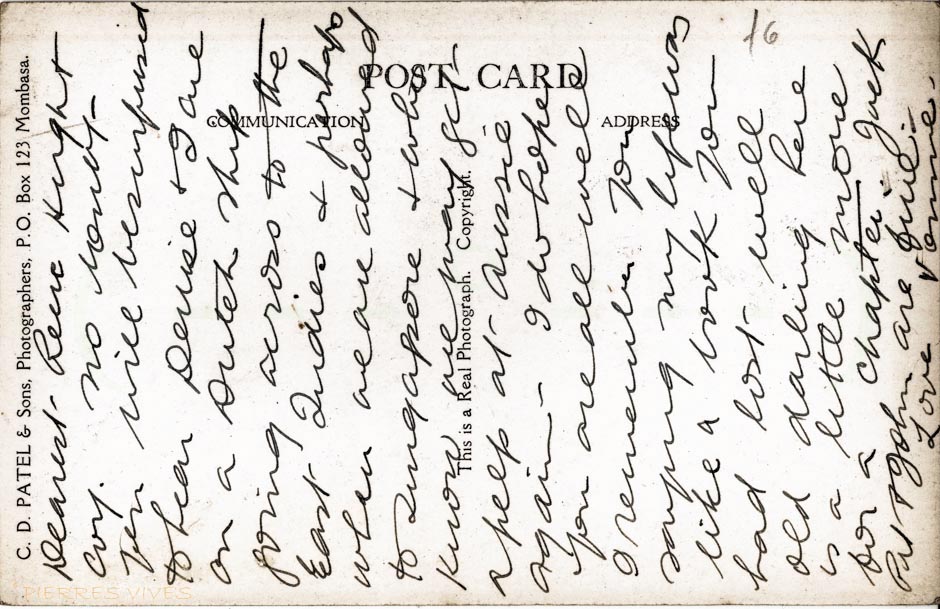 C. D. PATEL & Sons, Photographers, P.O. Box 123 Mombasa.
POST CARD
COMMUNICATION
ADDRESS
This is a Real Photograph. Copyright.
16
Dearest
no doubt
you will be surprised
to hear Denise & I are
on a Dutch ship
going across to the
East Indies & perhaps
when we are allowed
to Singapore & who
knows we may get
a peep at Aussie
again – I do hope
you are all well
I remember you
saying my life was
like a book you
had lost well
old darling here
is a little more
or a chapter. Jack
Pat & John are Juli
Love
PIERRES VIVES